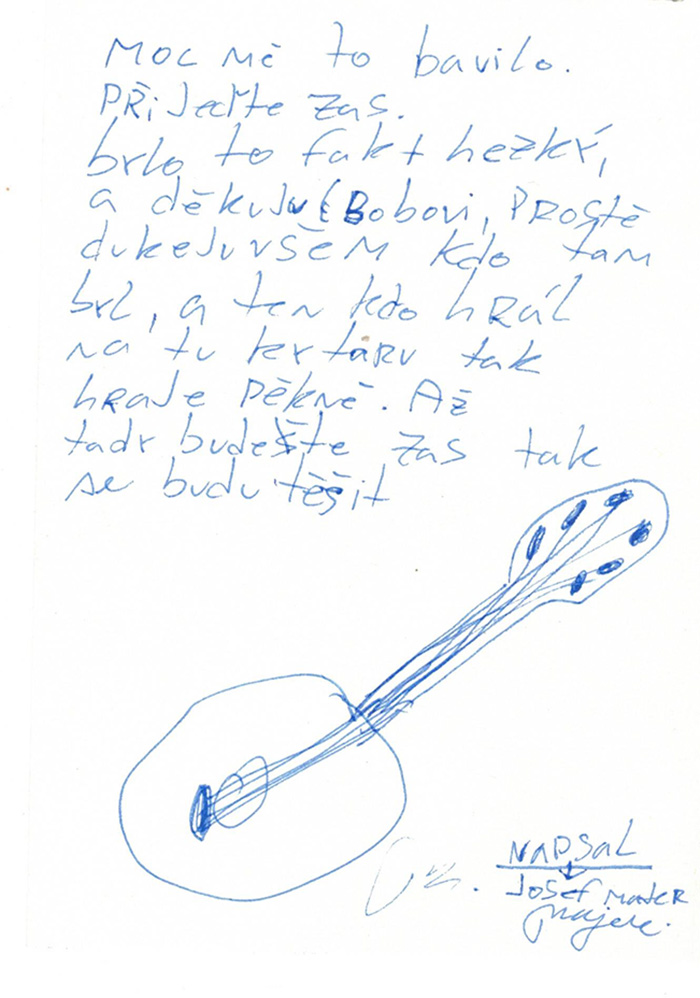 Moc mě to bavilo.
Přijeďte zas.
brlo to fakt hezký,
a děkuju (Bobovi, Prostě
dukeju všem kdo tam
brl, a ten kdo hrál
na tu kytaru tak
hraje pěkně. Až
tadr budešte zas tak
se budu těšit
NAPSAL
Josef